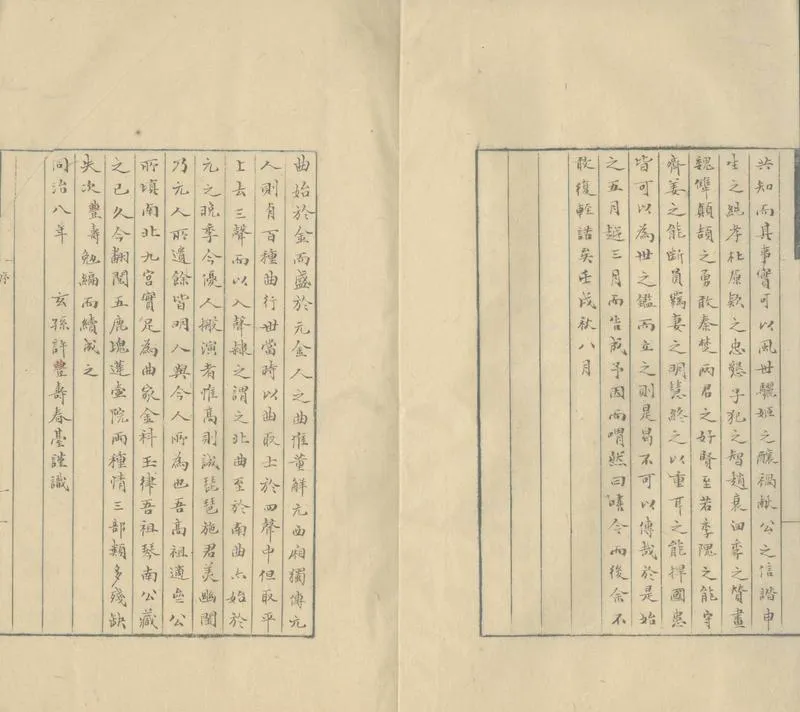 共知而其事實可以風世驪姬之釀禍獻公之信譖申
生之純孝杜原欵之忠懇子犯之智趙衰㳙季之贊畫
魏犨顛頡之勇敢秦楚兩君之好賢至若季隗之能守
齊姜之能斷負羈妻之明慧終之以重耳之能捍國患
皆可以為世之鑑而立之則是曷不可以傳哉於是始
之五月越三月而告成予因而喟然曰嘻今而後余不
敢復輕諾矣壬戌秋八月
曲始於金而盛於元金人之曲惟董解元西廂獨傳元
人則有百種曲行世當時以曲取士於四聲中但取平
上去三聲而以入聲隸之謂之北曲至於南曲亦始於
元之晚季今優人搬演者惟高則誠琵琶施君美幽閨
乃元人所遺餘皆明人與今人所為也吾高祖適齋公
所填南北九宮實足為曲家金科玉律吾祖琴南公藏
之已久今翻閱五鹿塊蓬壺院兩種情三部類多殘缺
失次豐壽勉編而續成之
同治八年 玄孫許豐壽春臺謹識
序
一